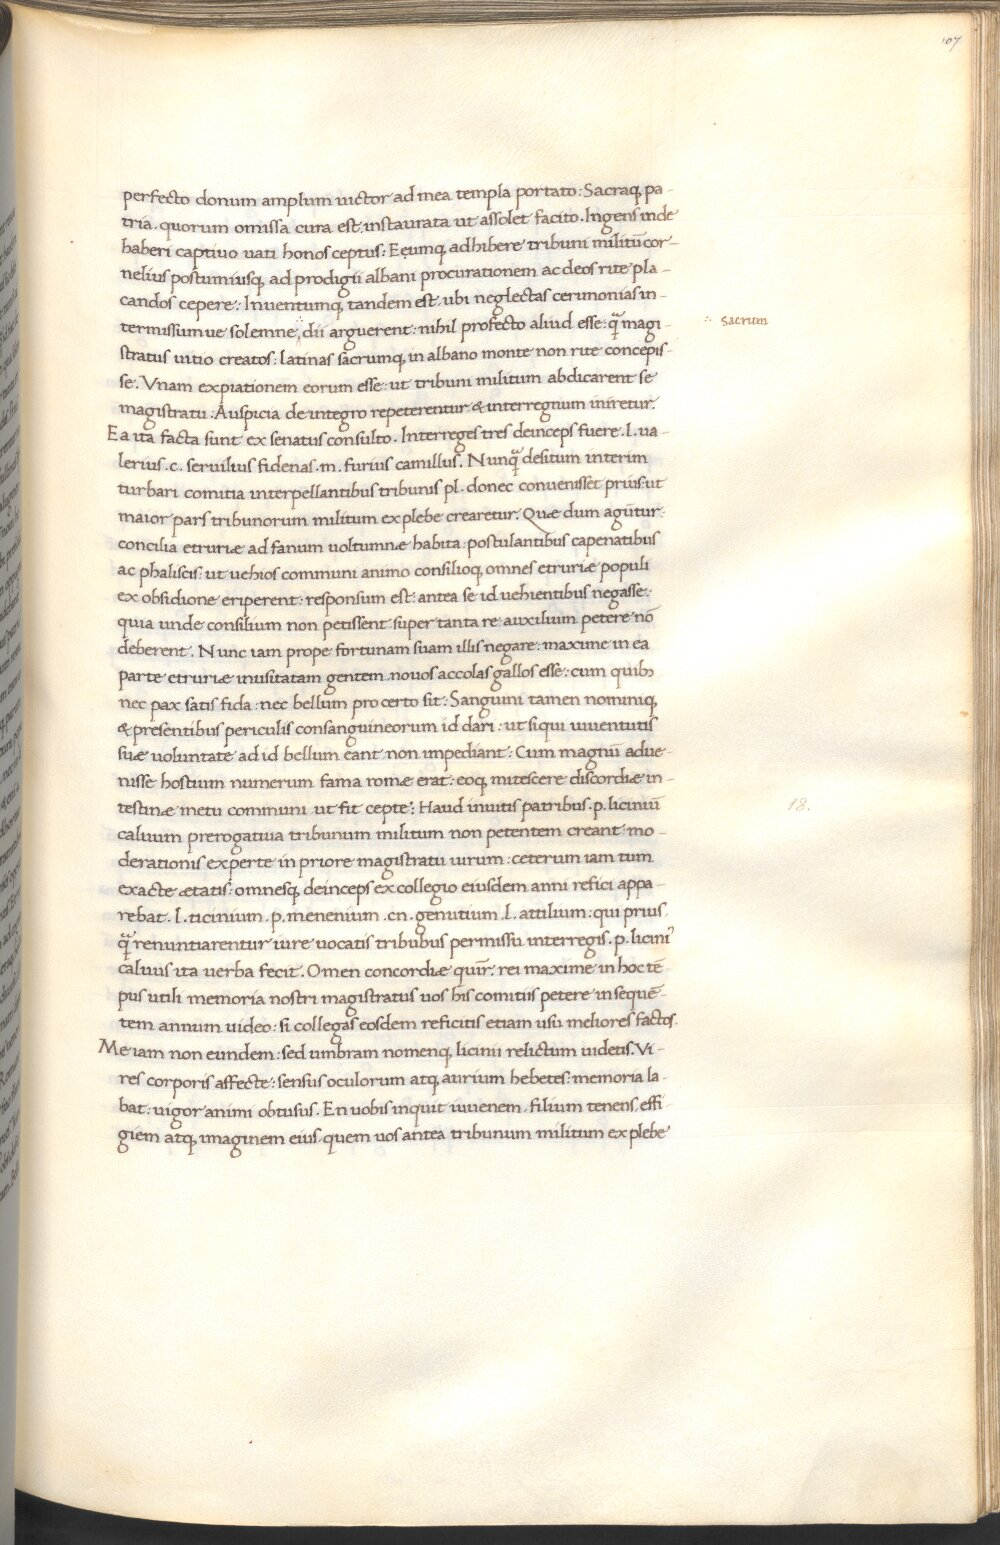 107
perfecto donum amplum uictor ad mea templa portato: Sacraq; pa-
tria. quorum omissa cura est, instaurata ut assolet facito. Ingens inde
haberi captiuo uati honos ceptus: Eęumq; adhibere tribuni militū cor-
nelius postumiusq; ad prodigii albani procurationem ac deos rite pla-
candos cepere: Inuentumq; tandem est ubi neglectas cerimonias in-
termissumue solemne, dii arguerent: nihil profecto aliud esse: q̄ magi-
∴ sacrum
stratus uitio creatos: latinas sacrumq; in albano monte non rite concepis-
se. Vnam expiationem eorum esse: ut tribuni militum abdicarent se
magistratu: Auspicia de integro repeterentur & interregnum iniretur.
Ea ita facta sunt ex senatus consulto. Interreges tres deinceps fuere. l. ua-
lerius. c. seruilius fidenas. m. furius camillus. Nunq̄ desitum interim
turbari comitia interpellantibus tribunis pl. donec conuenisset prius ut
maior pars tribunorum militum ex plebe crearetur. Quæ dum agūtur:
concilia etruriæ ad fanum uoltumnæ habita: postulantibus capenatibus
ac phaliscis: ut uehios communi animo consilioq; omnes etruriæ populi
ex obsidione eriperent: responsum est: antea se id uehientibus negasse:
quia unde consilium non petissent super tanta re: auxilium petere nō
deberent. Nunc iam prope fortunam suam illis negare: maxime in ea
parte etruriæ inusitatam gentem nouos accolas gallos esse: cum quib;
nec pax satis fida: nec bellum pro certo sit: Sanguini tamen nominiq;
& presentibus periculis consanguineorum id dari: ut siqui iuuentutis
suæ uoluntate ad id bellum eant non impediant: Cum magnū adue-
nisse hostium numerum fama romæ erat: eoq; mitescere discordiæ in-
testinæ metu communi ut fit cepte: Haud inuitis patribus. p. liciniū
18.
caluum prerogatiua tribunum militum non petentem creant: mo-
derationis experte in priore magistratu uirum: ceterum iam tum
exacte ætatis: omnesq; deinceps ex collegio eiusdem anni refici appa-
rebat. l. ticinium. p. menenium. cn. genutium. l. attilium: qui prius
q̄ renuntiarentur iure uocatis tribubus permissu interregis. p. licini9
caluus ita uerba fecit. Omen concordiæ quir̄. rei maxime in hoc tē-
pus utili memoria nostri magistratus uos his comitiis petere in sequē-
tem annum uideo: si collegas eosdem reficitis etiam usu meliores factos.
Me iam non eundem: sed umbram nomenq; licinii relictum uidetis. Vi-
res corporis affecte: sensus oculorum atq; aurium hebetes: memoria la-
bat: uigor animi obtusus. En uobis inquit iuuenem. filium tenens effi-
giem atq; imaginem eius, quem uos antea tribunum militum ex plebe